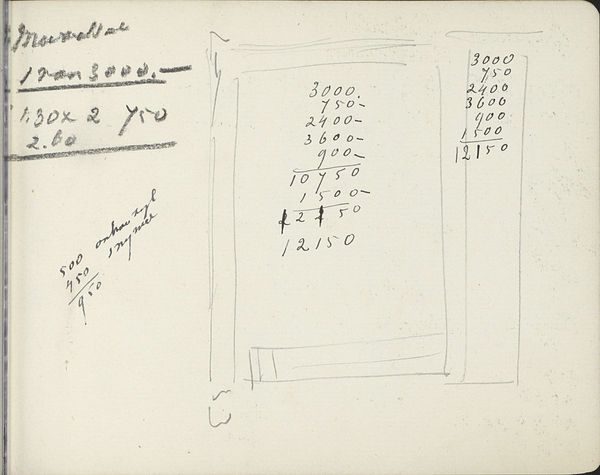 1 van 3000.—
1.30 x 2 750
2.60
500
450
950
3000.
750—
2400—
3600—
900—
10750
1500—
12250
12150
3000
750
2400
3600
900
1500
12150